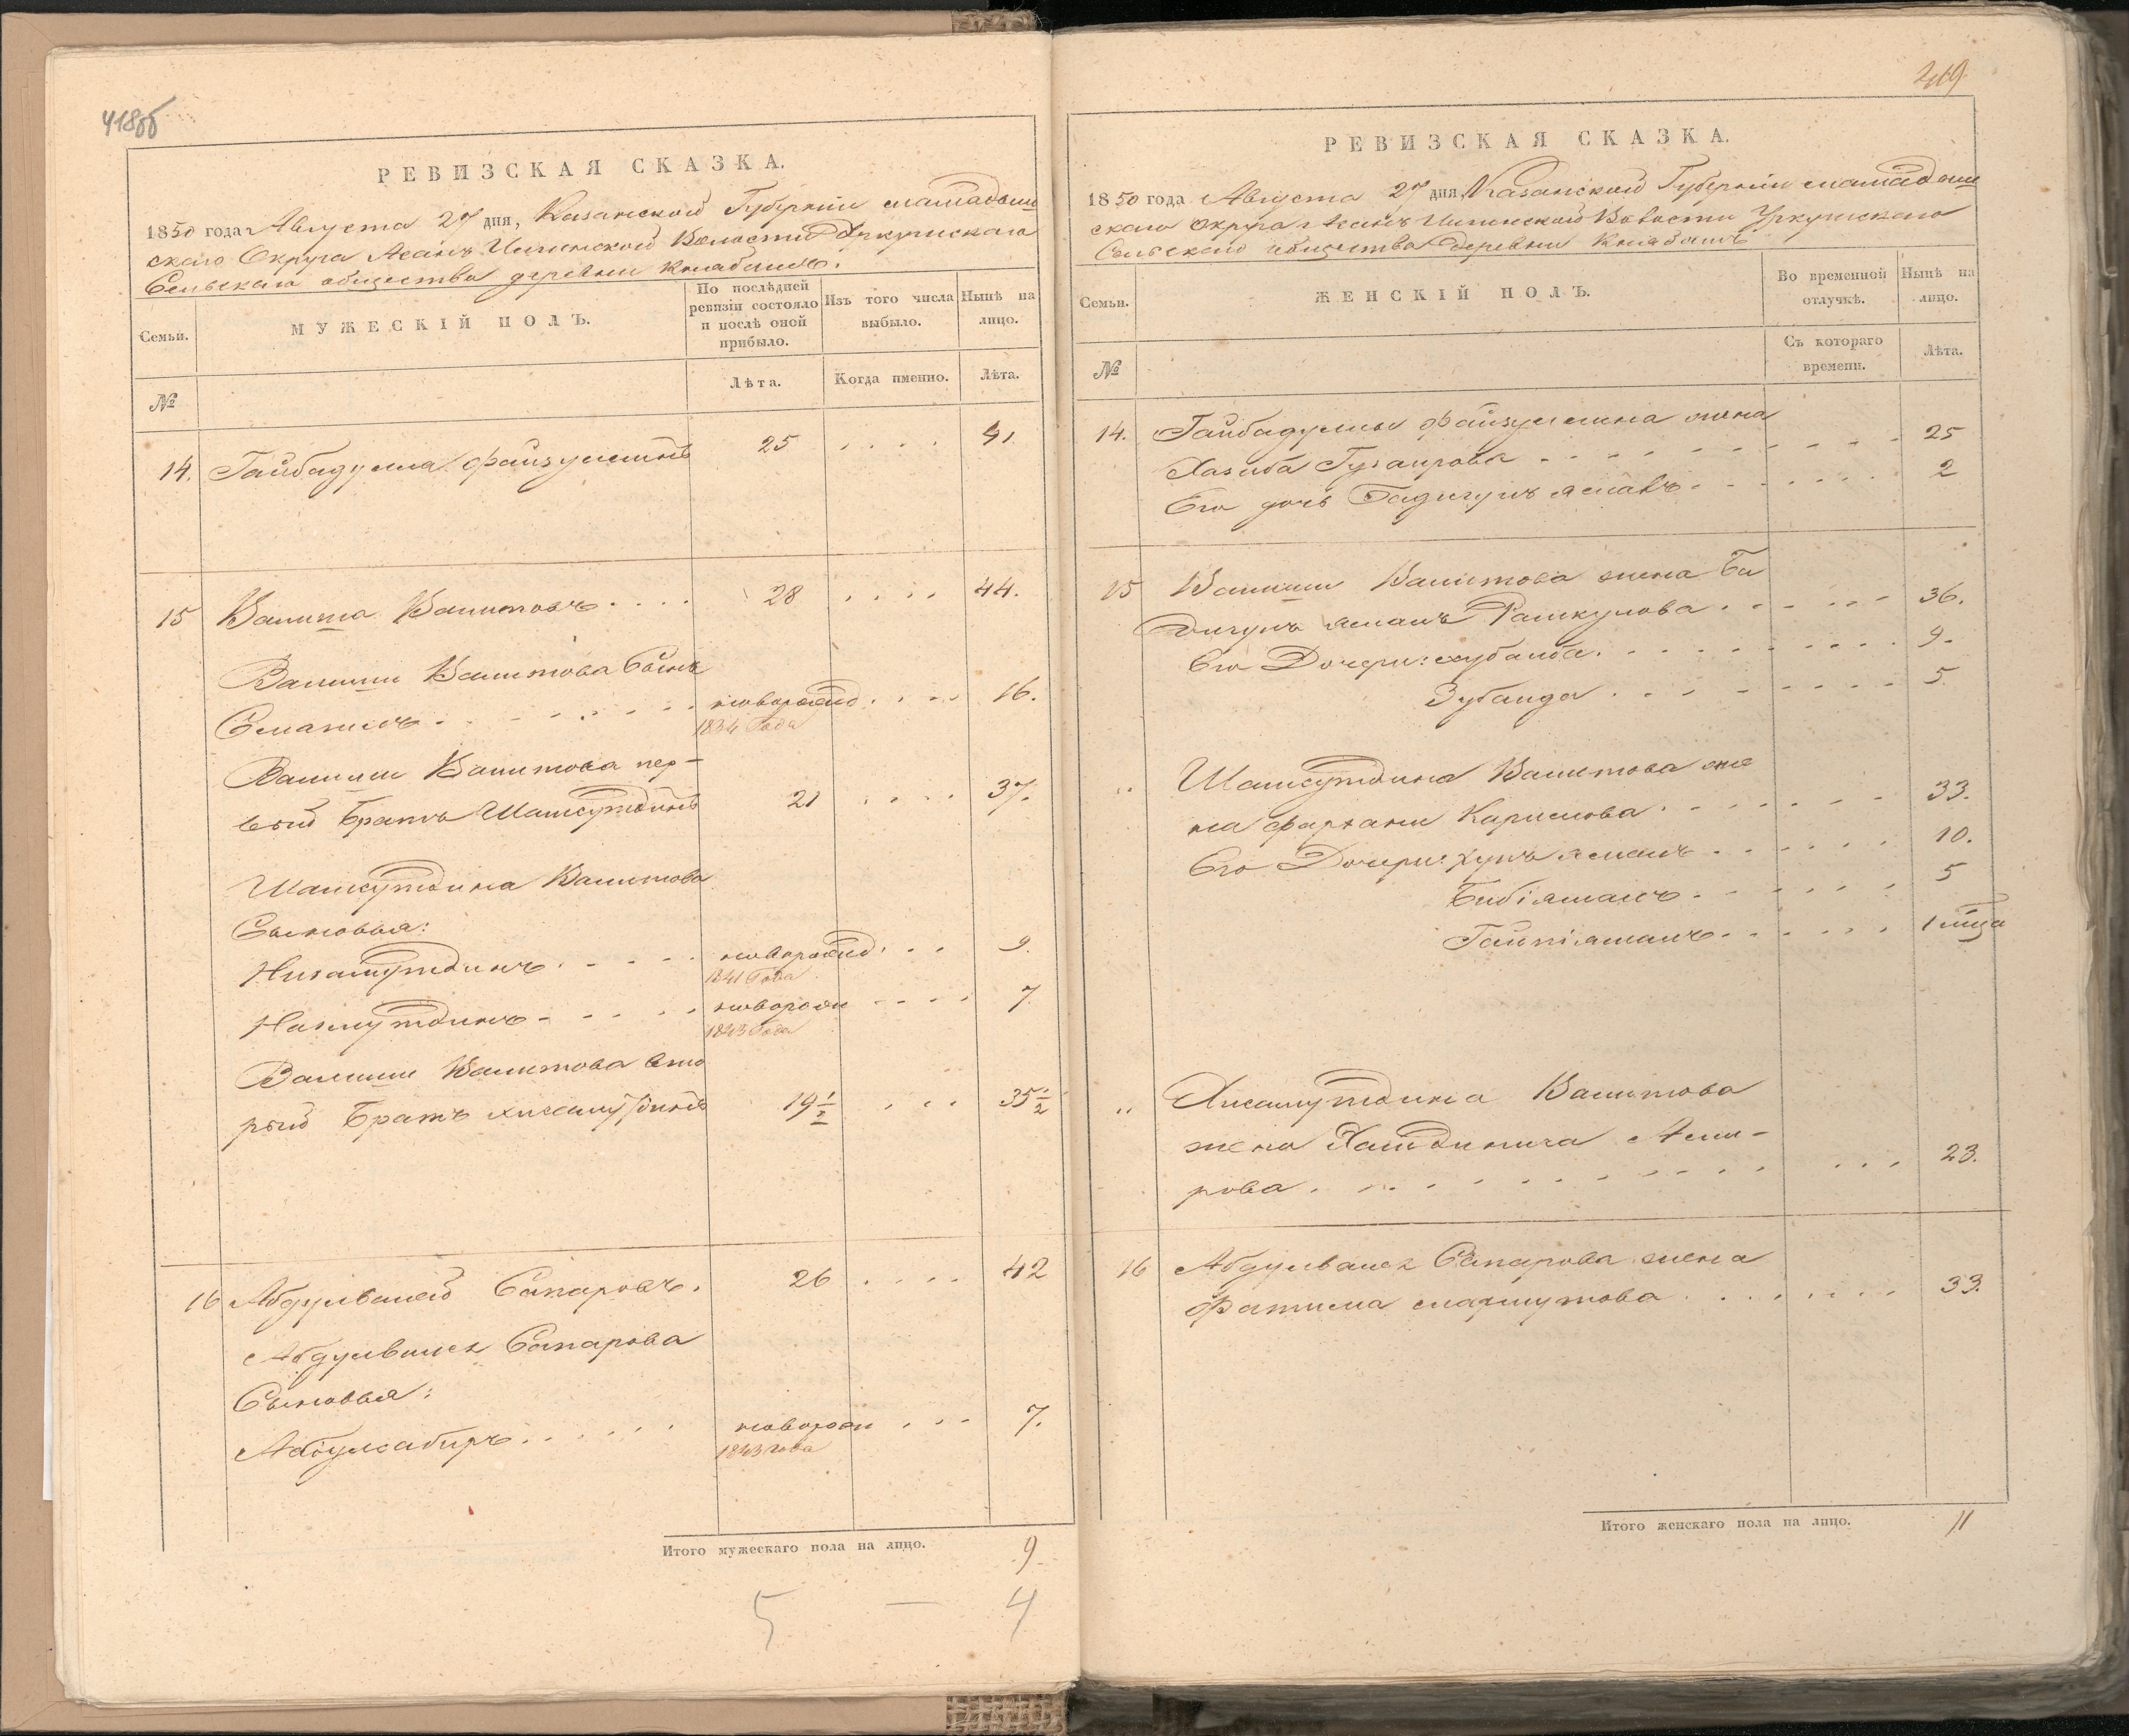 418об
РЕВИЗСКАЯ СКАЗКА.
1850 года Августа 27 дня, Казанской Губернiи Мамадыш
скаго Округа Асанъ Илгинской Волости Уркушскаго
Сельскаго общества деревни Клабашъ.
Семьи.
МУЖЕСКІЙ ПОЛЪ.
По послѣдней ревизіи состояло и послѣ оной прибыло.
Изъ того числа выбыло.
Нынѣ на лицо.
№
Лѣта.
Когда именно.
Лѣта.
14. Гайбадулла Файзуллинъ 25 . . . . 41
15 Валиша Валитовъ . . . . 28 . . . . 44.
Валиши Валитова Сынъ
Исмагилъ . . . . . . новорожд . . . . 16.
1834 Года
Валиши Валитова пер-
вый Братъ Шамсутдинъ 21 . . . . 37.
Шамсутдина Валитова
Сыновья:
Низамутдинъ . . . . . новорожд . . . 9.
1841 Года
Назмутдинъ . . . . . новорож . . . . 7
1843 Года
Валиши Валитова вто
рый Братъ Хисамутдинъ 19 1/2 . . . 35 1/2
16 Абдулвалей Сапаровъ. 26 . . . . 42
Абдулвалея Сапарова
Сыновья:
Абдулсабиръ . . . . . новорож . . . 7.
1843 года
Итого мужескаго пола на лицо. 9.
5 — 4
419
РЕВИЗСКАЯ СКАЗКА.
1850 года Августа 27 дня, Казанской Губернiи Мамадыш
скаго Округа Асанъ Илгинской Волости Уркушскаго
Сельскаго общества деревни Клабашъ
Семьи.
ЖЕНСКІЙ ПОЛЪ.
Во временной отлучкѣ.
Нынѣ на лицо.
№
Съ котораго времени.
Лѣта.
14. Гайбадуллы Файзуллина жена
Хазиба Гузаирова . . . . . . . . 25
Его дочь Бадигулъ . . . . . . 2
15 Валиши Валитова жена Би
Его Дочери: . . . . . . . . . 9.
Зубаида . . . . . . . . 5
" Шамсутдина Валитова же
на Фархани Каримова . . . . . . . 33.
Его Дочери: . . . . . . 10.
Бибіямалъ . . . . . . 5
1 мца
" Хисамутдина Валитова
жена Хамдинича Ами-
рова . . . . . . . . . . . . 23.
16 Абдулвалея Сапарова жена
Фатима Махмутова . . . . . . . 33.
Итого женскаго пола на лицо. 11